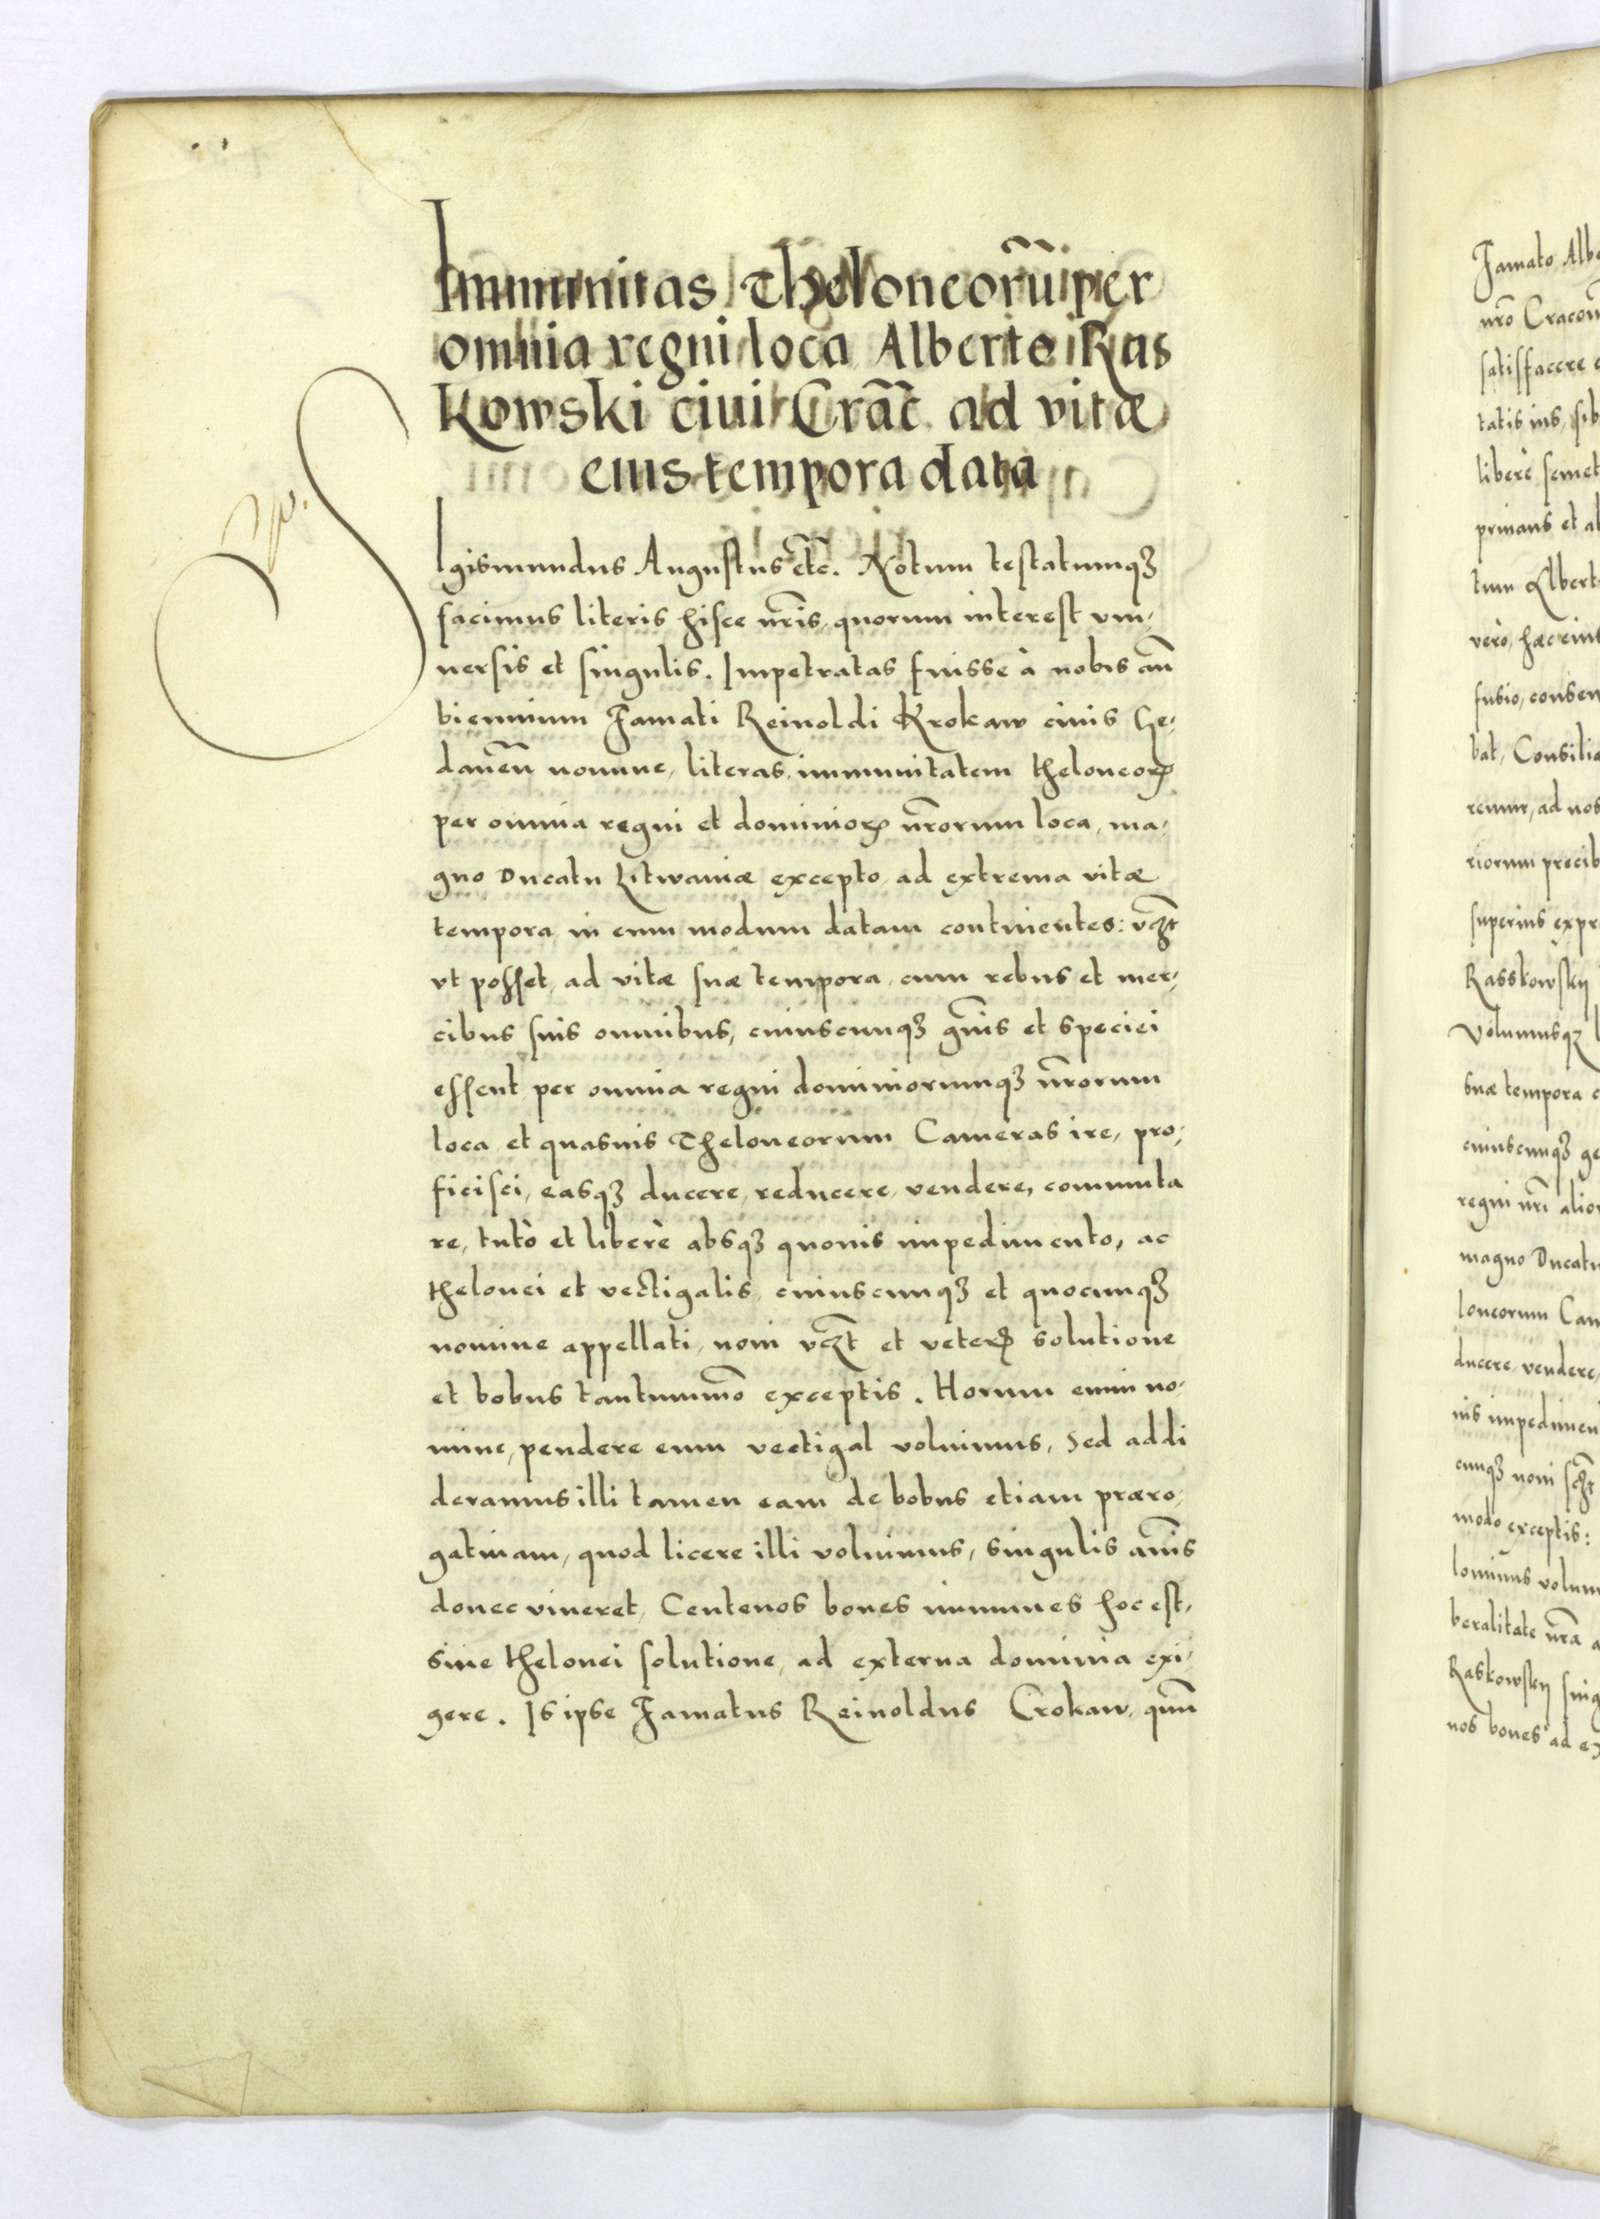 Immunitas Theloneorũ per
omnia regni loca Alberto Ras
Kowski ciui Crãc ad vitæ
eius tempora data
SIgismundus Augustus etc̃. Notum testatumqꝫ
facimus literis hisce nr̃is, quorum interest vni-
uersis et singulis. Impetratas fuisse à nobis añ
biennium Famati Reinoldi Krokaw ciuis Ge-
daneñ nomine, literas, immunitatem theloneoꝝ
per omnia regni et dominioꝝ nr̃orum loca, ma-
gno Ducatu Litwaniæ excepto, ad extrema vitæ
tempora in eum modum datam continentes: vcꝫt
vt posset, ad vitæ suæ tempora, cum rebus et mer-
cibus suis omnibus, cuiuscunqꝫ gñis et speciei
essent per omnia regni dominiorumqꝫ nr̃orum
loca et quasuis Theloneorum Cameras ire, pro-
ficisci, easqꝫ ducere, reducere, vendere, commuta
re, tutò et liberè absqꝫ quouis impedimento, ac
thelonei et vectigalis, cuiuscunqꝫ et quocunqꝫ
nomine appellati, noui vcꝫt et veteꝝ solutione
et bobus tantummõ exceptis. Horum enim no-
mine, pendere eum vectigal voluimus, Sed addi
deramus illi tamen eam de bobus etiam præro-
gatiuam, quod licere illi voluimus, singulis anĩs
donec viueret, Centenos boues immunes hoc est,
sine thelonei solutione, ad externa dominia exi-
gere. Is ipse Famatus Reinoldus Crokaw, quũ
Famato Albe
nr̃o Cracou
satisfacere
tatis ius, sib
liberè semet
priuans et
tum Alberto
vero, hæc eius
fusio, consen
bat, Consilia
remur, ad nos
riorum precib
superius expre
Rasskowsky
Volumusqꝫ
suæ tempora
cuiuscunqꝫ ge
regni nr̃i alior
magno Ducatu
loneorum Cam
ducere, vendere,
uis impedimen
cunqꝫ noui scꝫt
modo exceptis:
lonimus volum
beralitate nr̃a
Raskowsky sing
nos boues ad ex